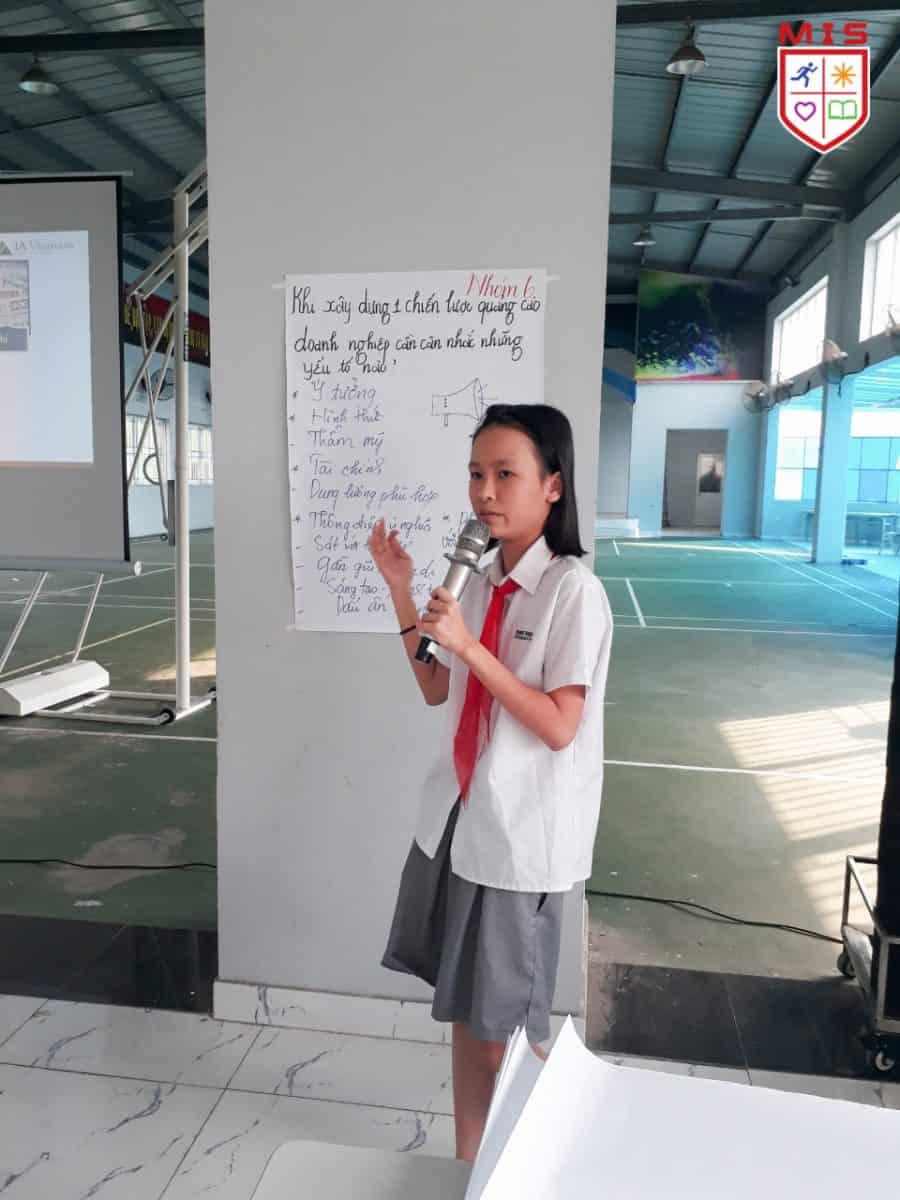 MIS
JA Vietnam
Nhóm 6
Khi xây dựng 1 chiến lược quảng cáo
doanh nghiệp cần cân nhắc những
yếu tố nào?
* Ý tưởng
* Hình thức
- Thẩm mỹ
- Tài chính
- Dung lượng phù hợp
* Thông điệp ý nghĩa
- Sát với
- Gần gũi
- Sáng tạo -
- Dấu ấn